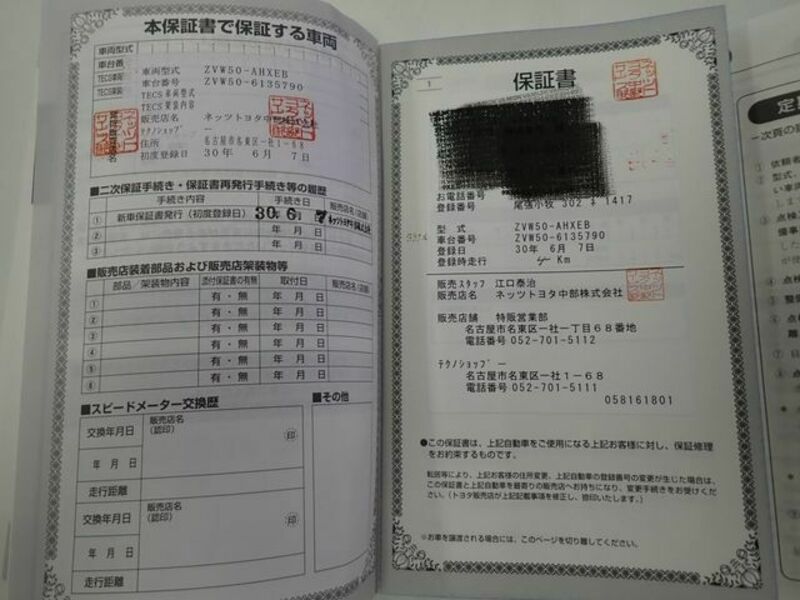 本保証書で保証する車両
車両型式
車台番
TECS車両
TECS架装
車両型式 ZVW50-AHXEB
車台番号 ZVW50-6135790
TECS車両型式
TECS架装内容
販売店名 ネッツトヨタ中部
テクノショップ ー
住所 名古屋市名東区一社1-68
初度登録日 30年 6月 7日
■二次保証手続き・保証書再発行手続き等の履歴
手続き内容 手続き日 販売店名(店舗)
① 新車保証書発行(初度登録日) 30年 6月 7
② 年 月 日
③ 年 月 日
■販売店装着部品および販売店架装物等
部品/架装物内容 添付保証書の有無 取付日 販売店名(店舗)
① 有・無 年 月 日
② 有・無 年 月 日
③ 有・無 年 月 日
④ 有・無 年 月 日
⑤ 有・無 年 月 日
⑥ 有・無 年 月 日
■スピードメーター交換歴
■その他
交換年月日 販売店名(認印) 印
年 月 日
走行距離
交換年月日 販売店名(認印) 印
年 月 日
走行距離
1
保証書
お電話番号
登録番号 尾張小牧 302 そ 1417
型 式 ZVW50-AHXEB
車台番号 ZVW50-6135790
登録日 30年 6月 7日
登録時走行 Km
販売スタッフ 江口泰治
販売店名 ネッツトヨタ中部株式会社
販売店舗 特販営業部
名古屋市名東区一社一丁目68番地
電話番号 052-701-5112
テクノショップ ー
名古屋市名東区一社1-68
電話番号 052-701-5111
058161801
●この保証書は、上記自動車をご使用になる上記お客様に対し、保証修理
をお約束するものです。
転居等により、上記お客様の住所変更、上記自動車の登録番号の変更が生じた場合は、
この保証書と上記自動車を最寄りの販売店へお持ちになり、変更手続きをお受けくだ
さい。(トヨタ販売店が上記記載事項を修正し、捺印いたします。)
※お車を譲渡される場合には、このページを切り離してください。
一次頁の
① 依頼者
② 型式、
い車両
③ 点検
備事
④ 点検
⑤ 整備
⑥ 点検